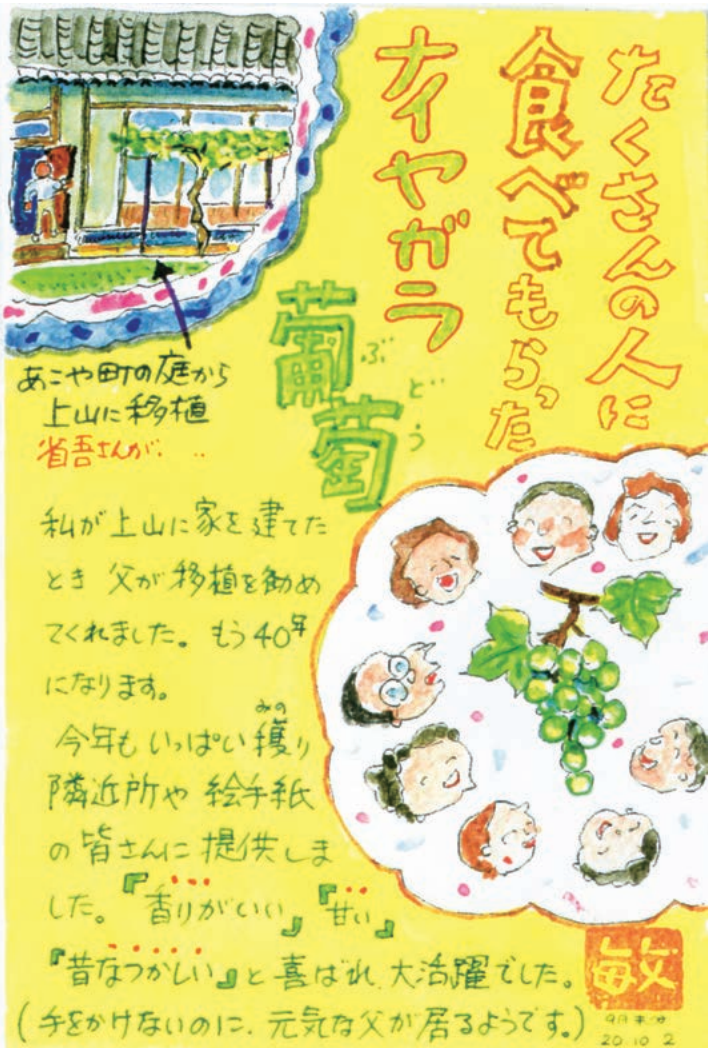 たくさんの人に
食べてもらった
ナイヤガラ
葡萄
ぶどう
あこや町の庭から
上山に移植
省吾さんが...
私が上山に家を建てた
とき 父が移植を勧め
てくれました。もう40年
になります。
みの
今年もいっぱい穫り
隣近所や 絵手紙
の皆さんに提供しま
した。『香りがいい』『甘い』
『昔なつかしい』と喜ばれ、大活躍でした。
(手をかけないのに、元気な父が居るようです。)
敏
20.10 2